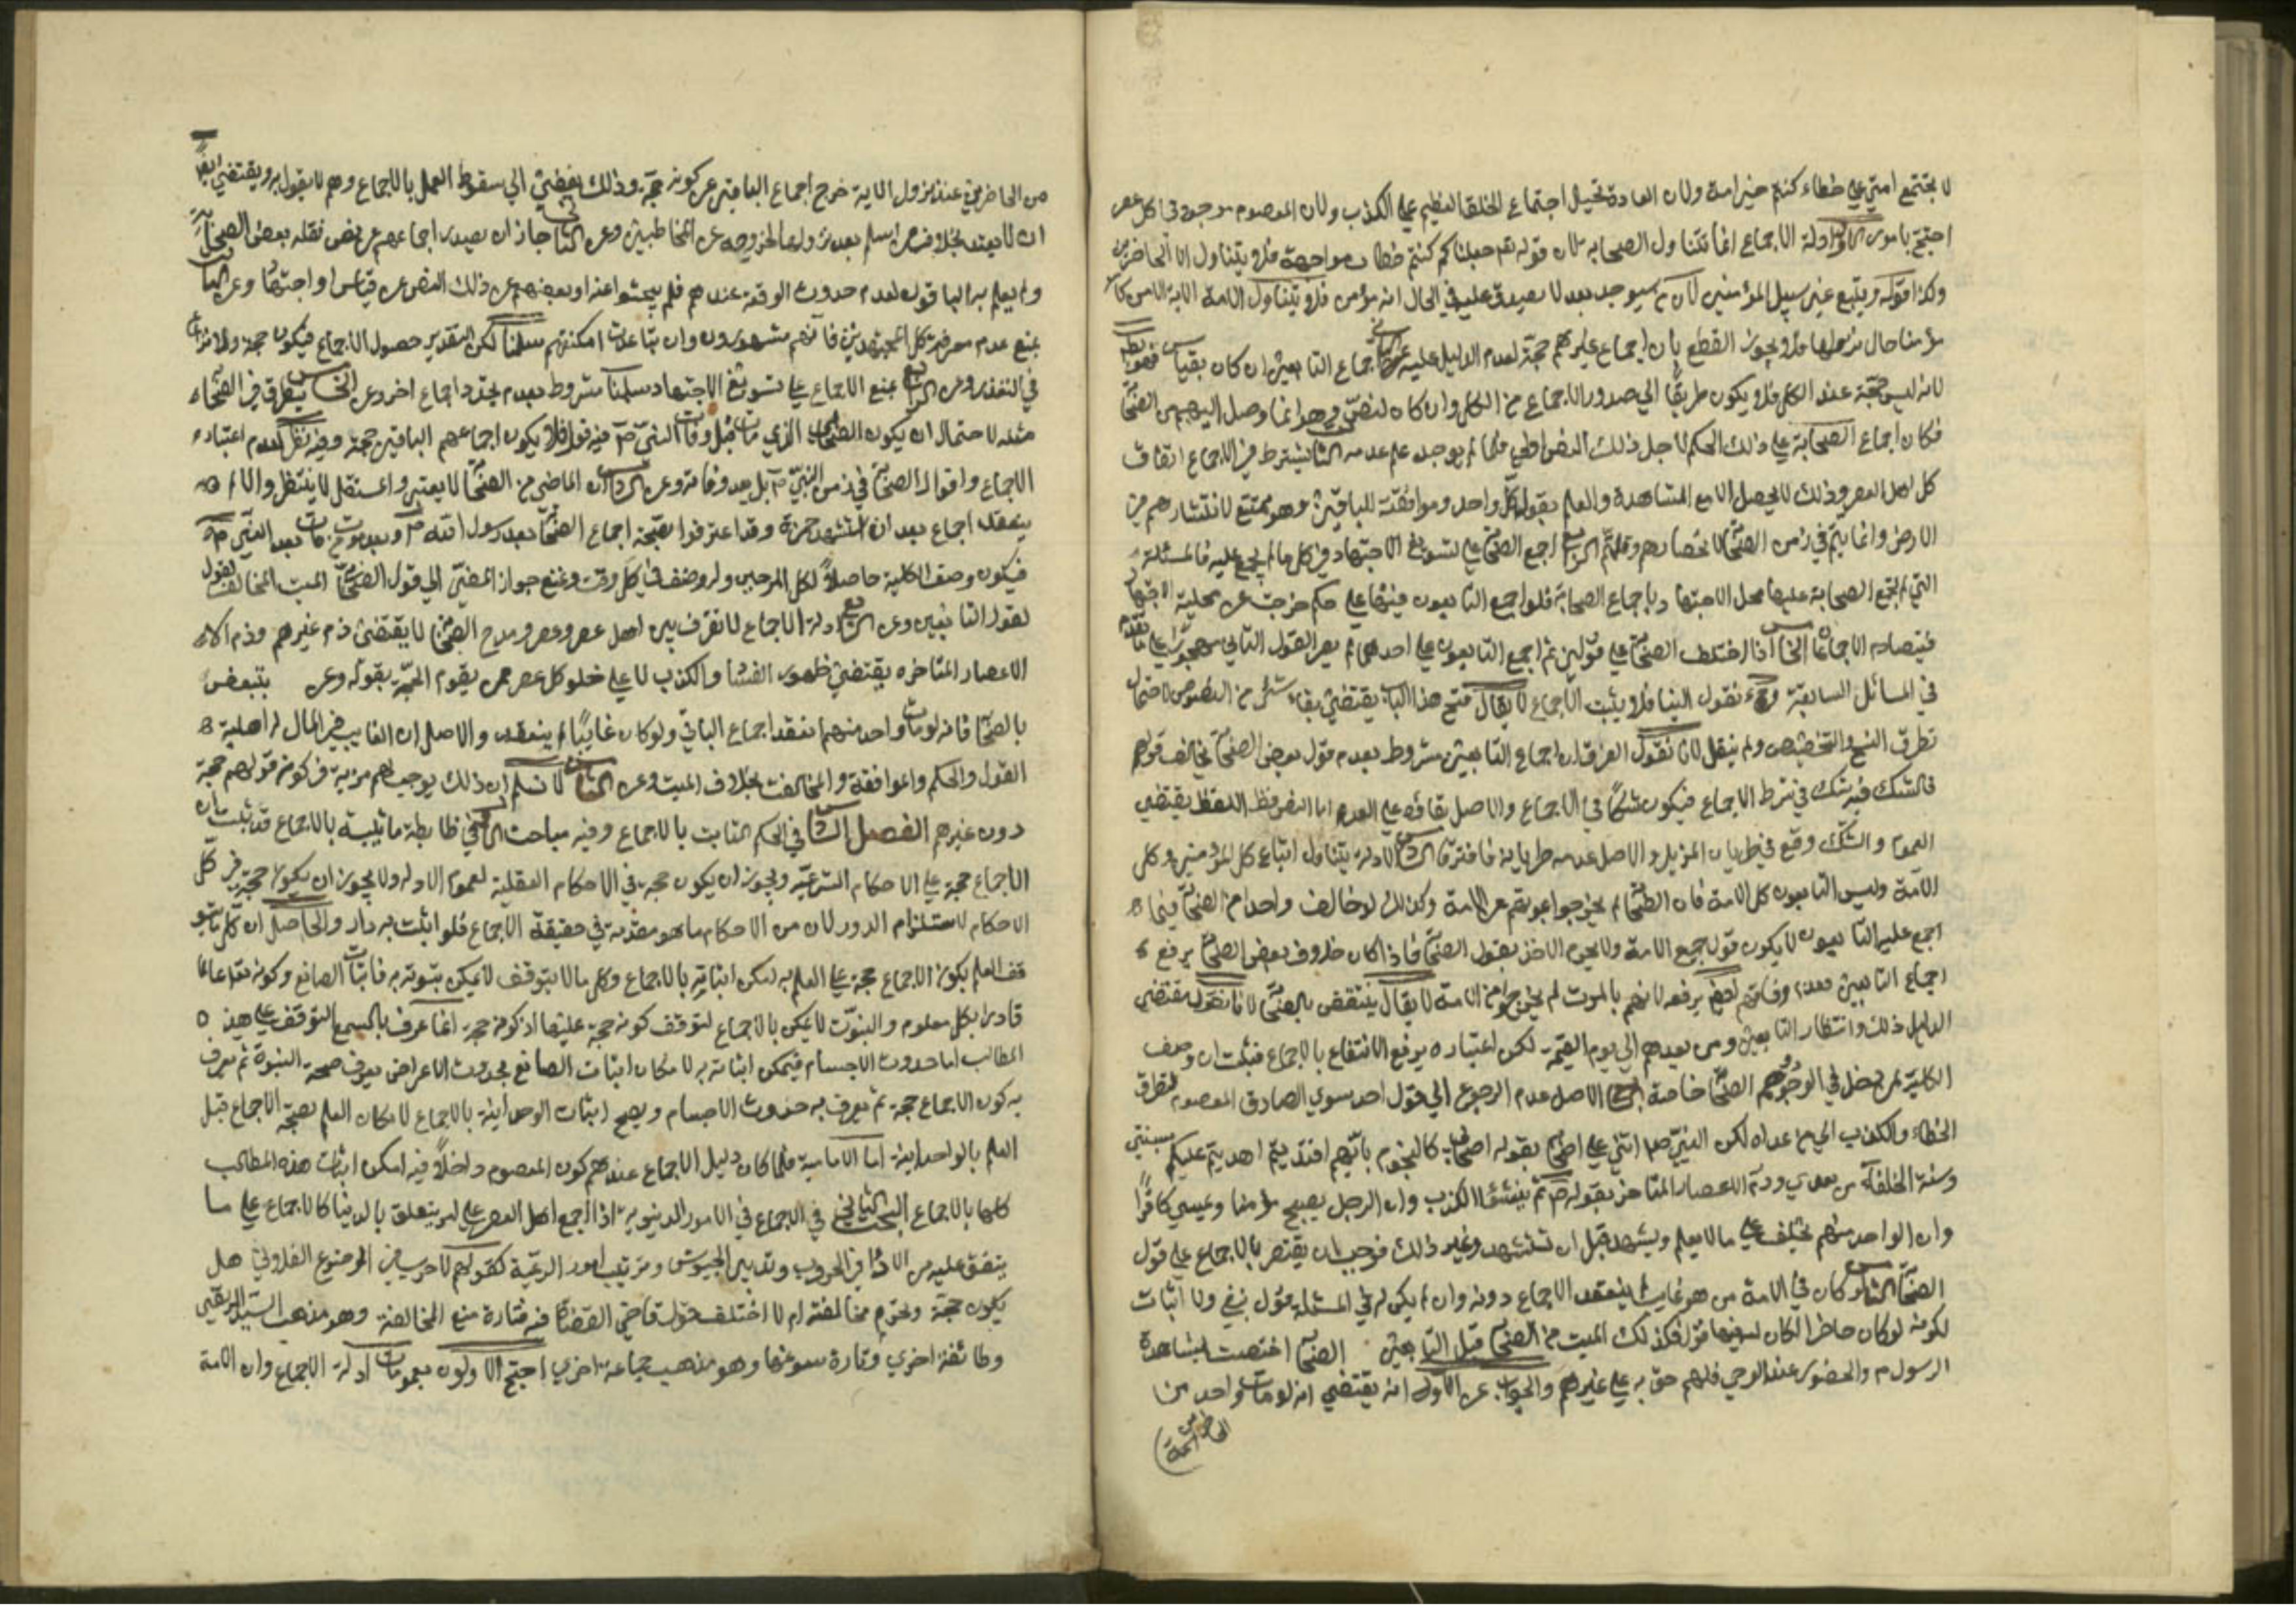 لا يجتمع امتي علي خطاء كنتم خير امة ولان العادة تحيل اجتماع الخلق العظيم علي الكذب ولان المعصوم موجود في كل عصر
احتج بامور الاول ادلة الاجماع انما تتناول الصحابه لان قوله تعم جعلناكم كنتم خطاب مواجهة فلا يتناول الا الحاضرين
وكذا قوله ويتبع غير سبيل المؤمنين لان من سيوجد بعد لا يصدق عليه في الحال انه مؤمن فلا يتناول الامة الا به
مؤمنا حال نزولها فلا يجوز القطع بان اجماع غيرهم حجة لعدم الدليل عليه الثاني اجماع التابعين ان كان بقياس فهو بط
لانه ليس حجة عند الكل فلا يكون طريقا الي صدور الاجماع من الكل وان كان لنص وهو انما وصل اليهم من الصحا
فكان اجماع الصحابة علي ذلك الحكم لاجل ذلك النص اولي فلما لم يوجد علم عدمه الثا يشترط في الاجماع اتفاق
كل اهل العصر وذلك لا يحصل الا مع المشاهدة والعلم بقول كل واحد وموافقته للباقين وهو ممتنع لانتشارهم في
الارض وانما يتم في زمن الصحا لانحصارهم وقلتهم الرابع اجمع الصحا علي تسويغ الاجتهاد في كل ما لم يجمع عليه فالمسئلة
التي لم يجمع الصحابة عليها محل الاجتها باجماع الصحابة فلو اجمع التابعون فيها علي حكم خرجت عن محلية الاجتها
فيتصادم الاجماعا الخا اذا اختلف الصحا علي قولين ثم اجمع التابعون علي احدهما لم يصر القول الثاني مهجورا علي ما تقدم
في المسائل السابقة نقول الينا فلا يثبت الاجماع لا يقال فتح هذا الباب يقتضي بقاء شئ من النصوص لاحتمال
تطرق النسخ والتخصيص ولم ينقل لانا نقول الفرق ان اجماع التابعين مشروط بعدم قول بعض الصحا يخالف قولهم
فالشك فيه شك في شرط الاجماع فيكون شكا في الاجماع والاصل بقاؤه علي العدم اما النص فظ اللفظ يقتضي
العموم والشك وقع في طريان المزيل والاصل عدمه طريانه فافترقا السادس الادلة يتناول اتباع كل المؤمنين وكل
الامة وليس التابعون كل الامة فان الصحا لم يخرجوا بموتهم عن الامة وكذلك لو خالف واحد من الصحا فيما
اجمع عليه التابعون لا يكون قول جميع الامة ولا يحرم الاخذ بقول الصحا فاذا كان خلاف بعض الصحا يرفع
اجماع التابعين فعدم وفاقهم ايض يرفعه لانهم بالموت لم يخرجوا من الامة لا يقال ينتقض بالصحا لانا نقول مقتضي
الدليل ذلك وانتظار التابعين ومن بعدهم الي يوم القيمة لكن اعتباره يرفع الانتفاع بالاجماع فيثبت ان وصف
الكلية لمن دخل في الوجود وهم الصحا خاصة الاصل عدم الرجوع الي قول احد سوي الصادق المعصوم لتطرق
الخطاء والكذب الي من عداه لكن النبي صم اثني علي اصحابه بقوله اصحابي كالنجوم بايهم اقتديتم اهديتم عليكم بسنتي
وسنة الخلفاء من بعدي وذم الاعصار المتاخرة بقوله ص ثم يفشوا الكذب وان الرجل يصبح مؤمنا ويمسي كافرا
وان الواحد منهم يحلف علي ما لا يعلم ويشهد قبل ان تستشهد وغير ذلك فوجب ان يقتصر بالاجماع علي قول
الصحا لو كان في الامة من هو غايب لم ينعقد الاجماع دونه وان لم يكن له في المسئلة قول بنفي ولا اثبات
لكونه لو كان حاضرا لكان له فيها قول فكذلك الميت من الصحا قبل التابعين الصحا اختصت بمشاهدة
الرسول م والحضور عند الوحي فلهم حق به علي غيرهم والجواب عن الاول انه يقتضي انه لو مات واحد من
الحاضرين
من الحاضرين عند نزول الاية خرج اجماع الباقين عن كونه حجة وذلك يفضي الي سقوط العمل بالاجماع وهم لا يقول به ويقتضي ايض
ان لا يعتد بخلاف من اسلم بعد نزولها لخروجه عن المخاطبين وعن الثا جاز ان يصدر اجماعهم عن نص نقله بعض الصحابة
ولم يعلم به الباقون لعدم حدوث الوقعة عندهم فلم يبحثوا عنه او بعضهم عن ذلك النص عن قياس او اجتها وعن الثا
بمنع عدم معرفة كل المجتهدين فانهم مشهورون وان تباعدت امكنتهم سلمنا لكن التقدير حصول الاجماع فيكون حجة
في التعذر وعن الرابع بمنع الاجماع علي تسويغ الاجتهاد سلمنا مشروط بعدم تجدد اجماع اخر وعن الخامس يتطرق في الصحاء
مثله لاحتمال ان يكون الصحابي الذي مات قبل وفات النبي ص فيه قول فلا يكون اجماعهم الباقين حجة وفيه نظر لعدم اعتباره
الاجماع واقوال الصحابة في زمن النبي ص بل بعد وفاته وعن السادس ان الماضي من الصحا لا يعتبر والمستقبل لا ينتظر والا لم
ينعقد اجماع بعد ان استشهد حمزة وقد اعترفوا بصحة اجماع الصحا بعد رسول الله ص وبعد موت من مات بعد النبي ص
فيكون وصف الكلية حاصلا لكل الموجودين ولو وصف في كل وقت ونمنع جواز المضي الي قول الصحا الميت المخالف لقول
لقول التابعين وعن السابع ادلة الاجماع لا تفرق بين اهل عصر وعصر ومدح الصحابة لا يقتضي ذم غيرهم وذم
الاعصار المتاخره يقتضي ظهور الفساد والكذب لا علي خلو كل عصر عمن يقوم الحجة بقوله وعن ينتقض
بالصحا فانه لو مات واحد منهم انعقد اجماع الباقي ولو كان غايبا لم ينعقد والاصل ان الغايب في الحال له اهلية
القول والحكم والموافقة والمخالفت بخلاف الميت وعن التاسع لا نسلم ان ذلك يوجب لهم مزية في كونه قولهم حجة
دون غيرهم الفصل السادس في الحكم الثابت بالاجماع وفيه مباحث الاول في ضابطة ما يثبت بالاجماع قد ثبت ان
الاجماع حجة علي الاحكام الشرعية ويجوز ان يكون حجة في الاحكام العقلية لعموم الادلة ولا يجوز ان يكون حجة في كل
الاحكام لاستلزام الدور لان من الاحكام ما هو مقدمة في حقيقة الاجماع فلو اثبت به دار والحاصل ان كل ما يتو
قف العلم بكون الاجماع حجة علي العلم به لا يمكن اثباته بالاجماع وكل ما لا يتوقف لا يمكن ثبوته به فاثبات الصانع وكونه تعم عالما
قادرا بكل معلوم والنبوت لا يمكن بالاجماع لتوقف كونه حجة عليها اذ كونه حجة انما عرف بالسمع المتوقف علي هذه
المطالب اما حدوث الاجسام فيمكن اثباته به لامكان اثبات الصانع بحدوث الاعراض يعرف صحة النبوة ثم يعرف
به كون الاجماع حجة ثم يعرف به حدوث الاجسام ويصح اثبات الوحدانية بالاجماع لامكان العلم بصحة الاجماع قبل
العلم بالوحدانية اما الامامية فلما كان دليل الاجماع عندهم كون المعصوم داخلا فيه امكن اثبات هذه المطالب
كلها بالاجماع البحث الثاني في الاجماع في الامور الدنيوية اذا اجمع اهل العصر علي امر يتعلق بالدنيا كالاجماع علي ما
يتفق عليه من الاراء في الحروب وتدبير الجيوش وترتيب امور الرعية كقولهم لا حرب في الموضع الفلاني هل
يكون حجة وتحرم مخالفته ام لا اختلف قول قاضي القضاة فيه فتارة منع المخالفة وهو مذهب السيد المرتضي
وطائفة اخري وتارة سوغها وهو مذهب جماعة اخري احتج الاولون بعمومات ادلة الاجماع وان الامة